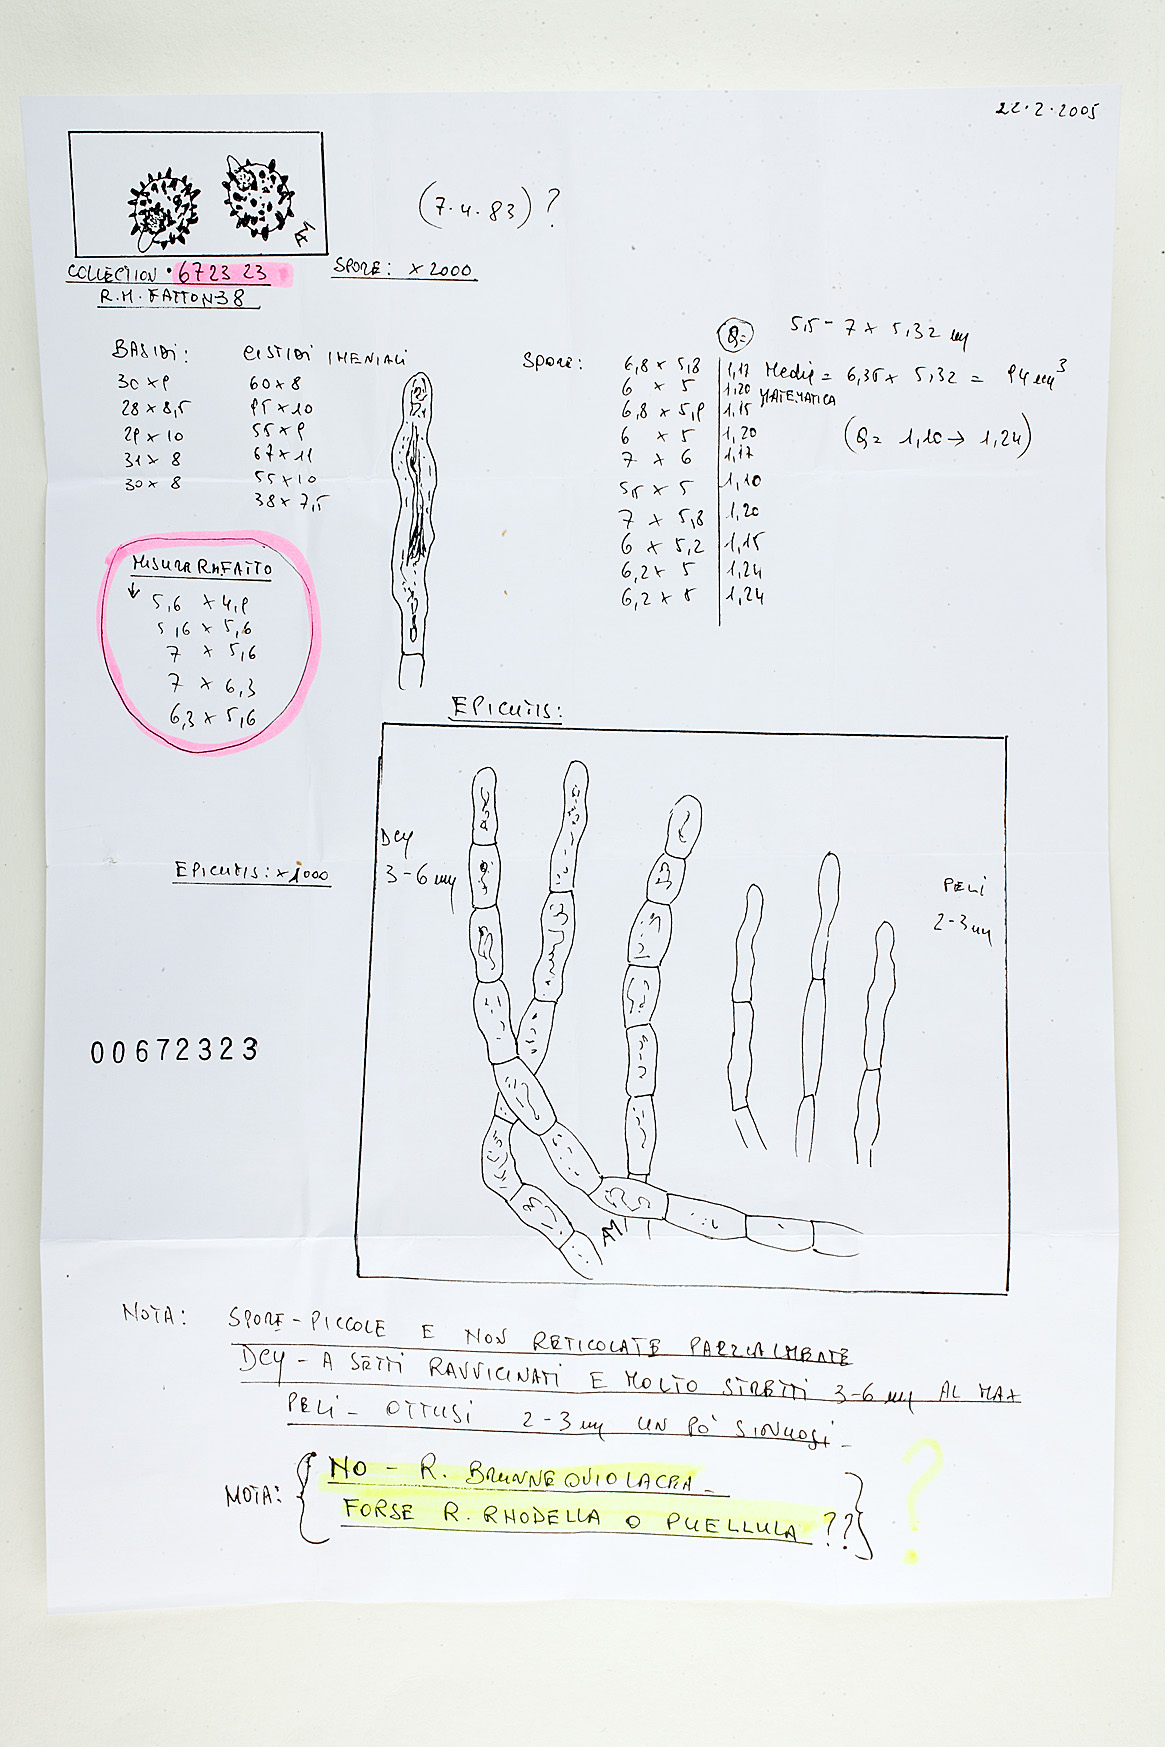 22.2.2005
(7.4.83)?
COLLECTION • 672323
R.H. FATTON 38
SPORE: × 2000
BASIDI:
30 × 9
28 × 8,5
29 × 10
31 × 8
30 × 8
CISTIDI IMENIALI
60 × 8
95 × 10
55 × 9
67 × 11
55 × 10
38 × 7,5
SPORE:
Q=
6,8 × 5,8 1,17
6 × 5 1,20
6,8 × 5,9 1,15
6 × 5 1,20
7 × 6 1,17
5,5 × 5 1,10
7 × 5,8 1,20
6 × 5,2 1,15
6,2 × 5 1,24
6,2 × 5 1,24
5,5 - 7 × 5,32 µm
Media = 6,35 × 5,32 = 94 µm³
MATEMATICA
(Q = 1,10 → 1,24)
MISURA R.H. FATTO
↓ 5,6 × 4,9
5,6 × 5,6
7 × 5,6
7 × 6,3
6,3 × 5,6
EPICUTIS:
EPICUTIS: × 1000
DCY
3-6 µm
PELI
2-3 µm
00672323
AM
NOTA: SPORE - PICCOLE E NON RETICOLATE PARZIALMENTE
DCY - A SETTI RAVVICINATI E MOLTO STRETTI 3-6 µm AL MAX
PELI - OTTUSI 2-3 µm UN PO' SINUOSI -
NOTA: { NO - R. BRUNNEOVIOLACEA -
FORSE R. RHODELLA O PUELLULA ??} ?